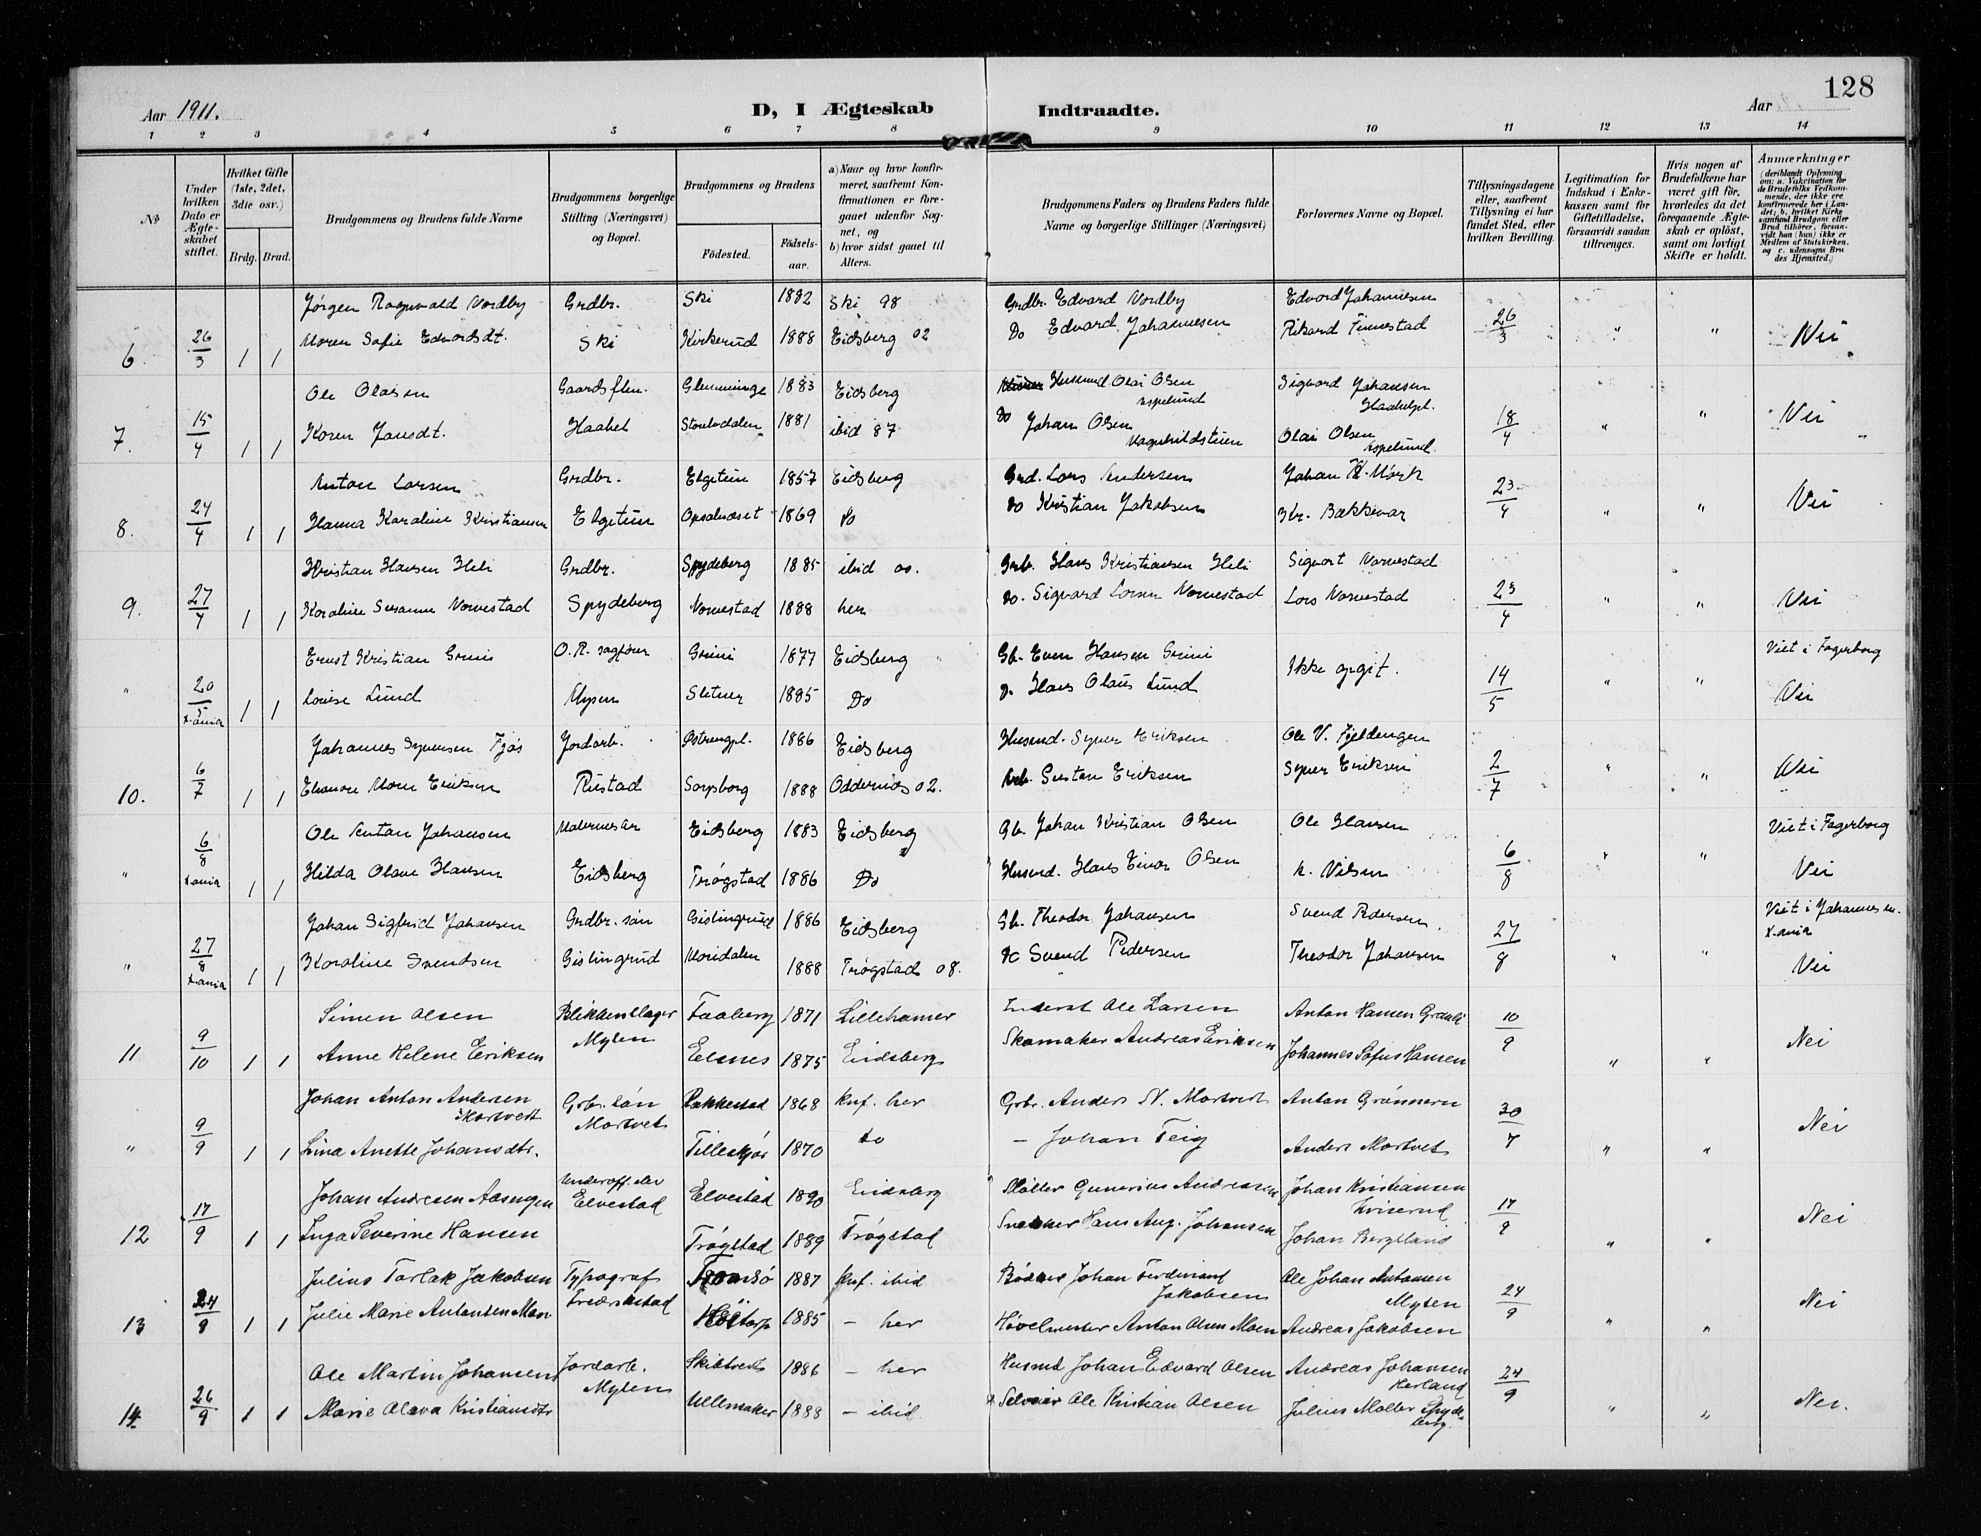 128
Aar 1911.
D, I Ægteskab Indtraadte.
Aar
1 2 3 4 5 6 7 8 9 10 11 12 13 14
No
Under hvilken Dato er Ægteskabet stiftet.
Hvilket Gifte (1ste, 2det, 3die osv.)
Brdg. Brud.
Brudgommens og Brudens fulde Navne
Brudgommens borgerlige Stilling (Næringsvei) og Bopæl.
Brudgommens og Brudens
Fødested.
Fødselsaar.
a) Naar og hvor konfirmeret, saafremt Konfirmationen er foregaaet udenfor Sognet, og
b) hvor sidst gaaet til Alters.
Brudgommens Faders og Brudens Faders fulde Navne og borgerlige Stillinger (Næringsvei)
Forlovernes Navne og Bopæl.
Tillysningsdagene eller, saafremt Tillysning ei har fundet Sted, efter hvilken Bevilling.
Legitimation for Indskud i Enkekassen samt for Giftetilladelse, forsaavidt saadan tiltrænges.
Hvis nogen af Brudefolkene har været gift før, hvorledes da det foregaaende Ægteskab er opløst, samt om lovligt Skifte er holdt.
Anmærkninger (deriblandt Oplysning om: a. Vakcination for de Brudefolks Vedkommende, der ikke ere konfirmerede her i Landet; b. hvilket Kirkesamfund Brudgom eller Brud tilhører, forsaavidt han (hun) ikke er Medlem af Statskirken. og c. udensogns Brudes Hjemsted.)
Jørgen Ragnvald Nordby Grdbr. Ski 1882 Ski 98 Grdbr. Edvard Nordby Edvard Johannesen
6. 26/3 1 1 Maren Sofie Edvardsdt. Ski Kirkerud 1888 Eidsberg 02 Do Edvard Johannesen Rikard Finnestad 26/3 " " Nei
Ole Olasen Gaardsflen. Glemminge 1883 Eidsberg Husmd Olai Olsen Aspelund Sigvard Johansen
7. 15/4 1 1 Karen Jansdt. Haabet 1881 ibid 87 Do Johan Olsen Olai Olsen Aspelund. 18/4 " " Nei
Anton Larsen Grdbr. Elgetun 1857 Eidsberg Grd. Lars Andersen Johan K. Mørk
8. 24/4 1 1 Hanna Karoline Kristiansen Elgetun Opsalnæset 1869 Do Do Kristian Jakobsen Kr. Bækkevar 23/4 " " Nei
Kristian Hansen Heli Grdbr. Spydeberg 1885 ibid 00. Grb. Hans Kristiansen Heli Sigvart Narvestad
9. 27/4 1 1 Karoline Susanne Narvestad Spydeberg Narvestad 1888 her Do. Sigvard Larsen Narvestad Lars Narvestad 23/4 " " Nei
Ernst Kristian Grini O.R. sagfører Grini 1877 Eidsberg Gb. Even Hansen Grini Ikke opgit. Viet i Fagerborg
" 20/5 X.ania 1 1 Louise Lund Mysen Sletner 1885 Do D. Hans Olaus Lund 14/5 " " Nei
Johannes Syversen Fjøs Jordarb. Østrengpl. 1886 Eidsberg Husmd. Syver Eriksen Ole N. Fjeldengen
10. 6/7 1 1 Eleonore Marie Eriksen Rustad Sarpsborg 1888 Oddernes 02. Arb. Gustav Eriksen Syver Eriksen 2/7 " " Nei
Ole Anton Johansen Malermester Eidsberg 1883 Eidsberg Gb. Johan Kristian Olsen Ole Hansen Viet i Fagerborg
" 6/8 X.ania 1 1 Hilda Olave Hansen Eidsberg Trøgstad 1886 Do Husmd. Hans Einar Olsen K. Nilsen 6/8 " " Nei
Johan Sigfred Johansen Grdbr. søn Gislingrud 1886 Eidsberg Gb. Theodor Johansen Svend Pedersen. Viet i Johannes k. X.ania
" 27/8 X.ania 1 1 Karoline Svendsen Gislingrud Maridalen 1888 Trøgstad 08. Do Svend Pedersen Theodor Johansen 27/8 " " Nei
Simen Olsen Blikkenslager Faaberg 1871 Lillehamer Inderst Ole Larsen Anton Hansen
11 9/10 1 1 Anne Helene Eriksen Mysen Elsnes 1875 Eidsberg Skomaker Andreas Eriksen Johannes Sofus Hansen 10/9 " " Nei
Johan Anton Andersen Mortvedt Grbr. søn Mortvet Rakkestad 1868 Knf. her Grbr. Anders N. Mortvedt Anton Grønnern
" 9/9 1 1 Lina Anette Johansdtr. Tilleskjør 1870 do — Johan Teig Anders Mortvet 30/7 " " Nei
Johan Andresen Aasengen Underoff. elev Elvestad Elvestad 1890 Eidsberg Møller Gunerius Andreasen Johan Kristiansen Kviserud
12 17/9 1 1 Inga Severine Hansen Trøgstad 1889 Trøgstad Snekker Hans Aug. Johansen Johan Bergsland 17/9 " " Nei
Julius Torlak Jakobsen Typograf Fredrikstad Tromsø 1887 Knf. ibid Bødker Johan Ferdinand Jakobsen Ole Johan Antonsen Mysen
13 24/9 1 1 Julie Marie Antonsen Moen Høitorp 1885 — her Høvelmester Anton Olsen Moen Andreas Jakobsen 24/9 " " Nei
Ole Martin Johansen Jordarb. Mysen Skibtvet 1886 — her Husmd Johan Edvard Olsen Andreas Johansen Herland
14 26/9 1 1 Marie Olava Kristiansdtr Ullemaker 1888 — ibid. Selveier Ole Kristian Olsen Julius Møller Spydeberg. 24/9 " " Nei.